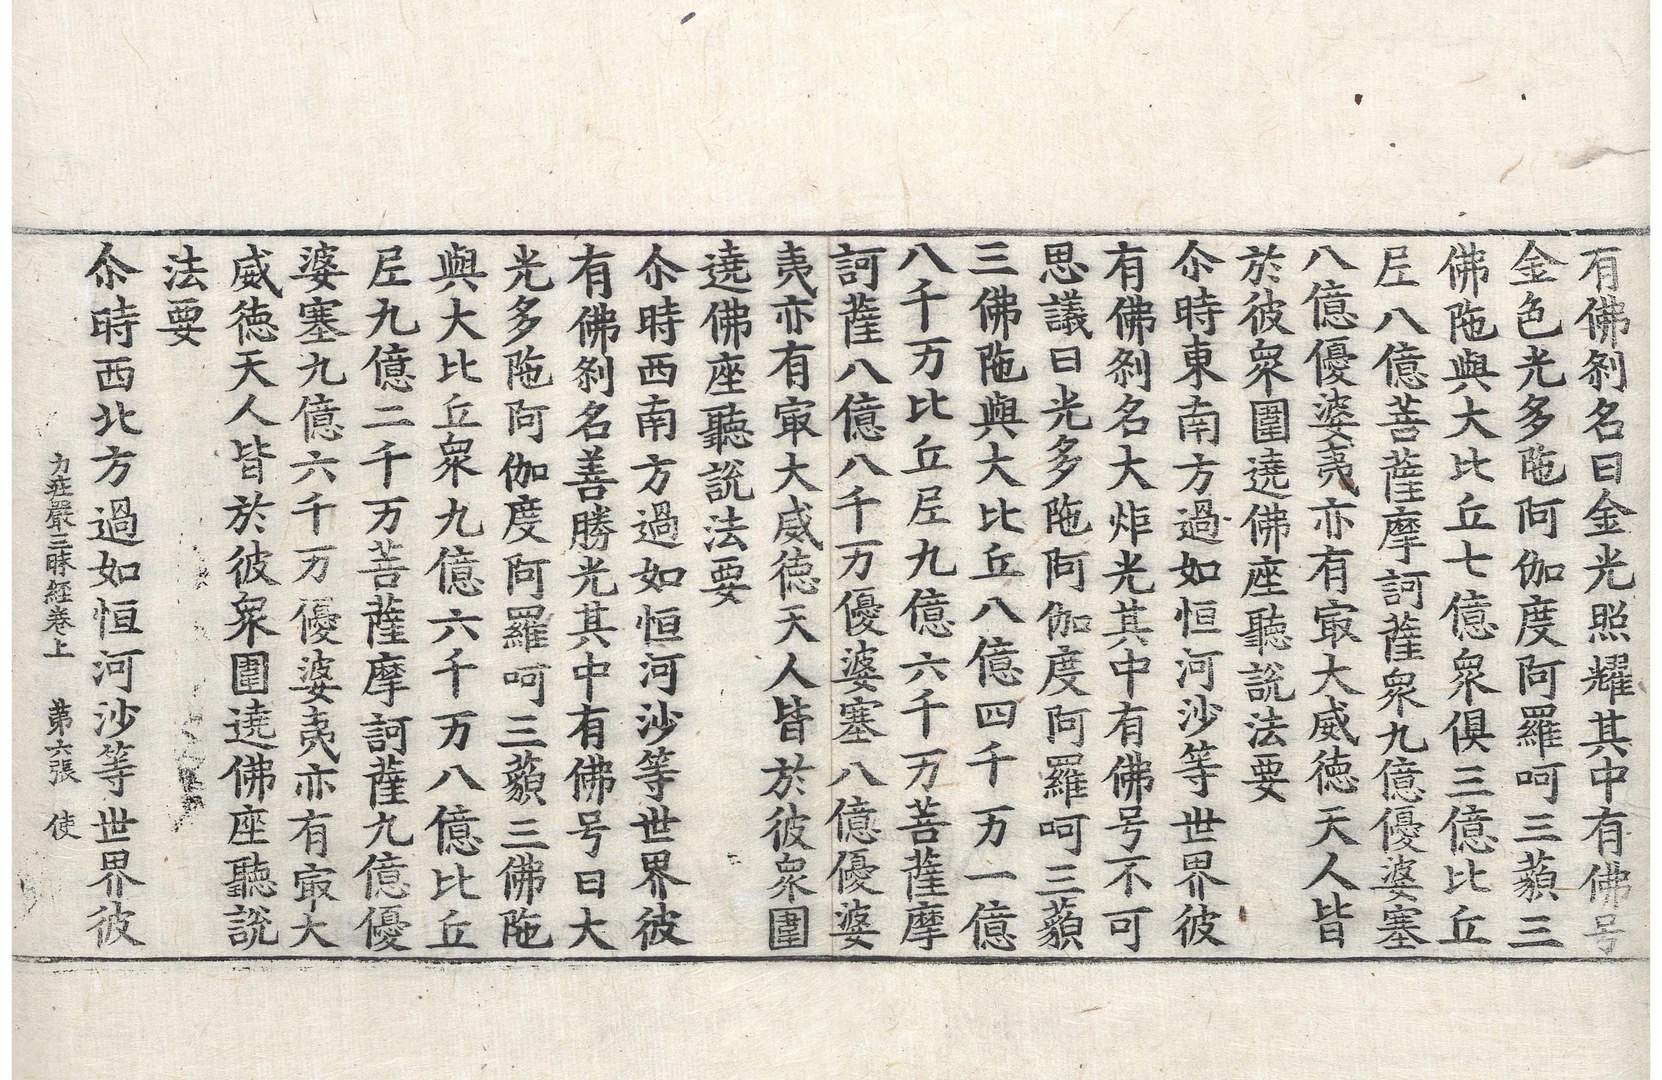 有佛刹名曰金光照耀其中有佛号
金色光多陁阿伽度阿羅呵三藐三
佛陁與大比丘七億衆俱三億比丘
尼八億菩薩摩訶薩衆九億優婆塞
八億優婆夷亦有㝡大威徳天人皆
於彼衆圍遶佛座聽說法要
尒時東南方過如恒河沙等世界彼
有佛刹名大炬光其中有佛号不可
思議日光多陁阿伽度阿羅呵三藐
三佛陁與大比丘八億四千万一億
八千万比丘尼九億六千万菩薩摩
訶薩八億八千万優婆塞八億優婆
夷亦有㝡大威徳天人皆於彼衆圍
遶佛座聽說法要
尒時西南方過如恒河沙等世界彼
有佛刹名善勝光其中有佛号曰大
光多陁阿伽度阿羅呵三藐三佛陁
與大比丘衆九億六千万八億比丘
尼九億二千万菩薩摩訶薩九億優
婆塞九億六千万優婆夷亦有㝡大
威徳天人皆於彼衆圍遶佛座聽說
法要
力莊嚴三昧經卷上　第六張　使
尒時西北方過如恒河沙等世界彼